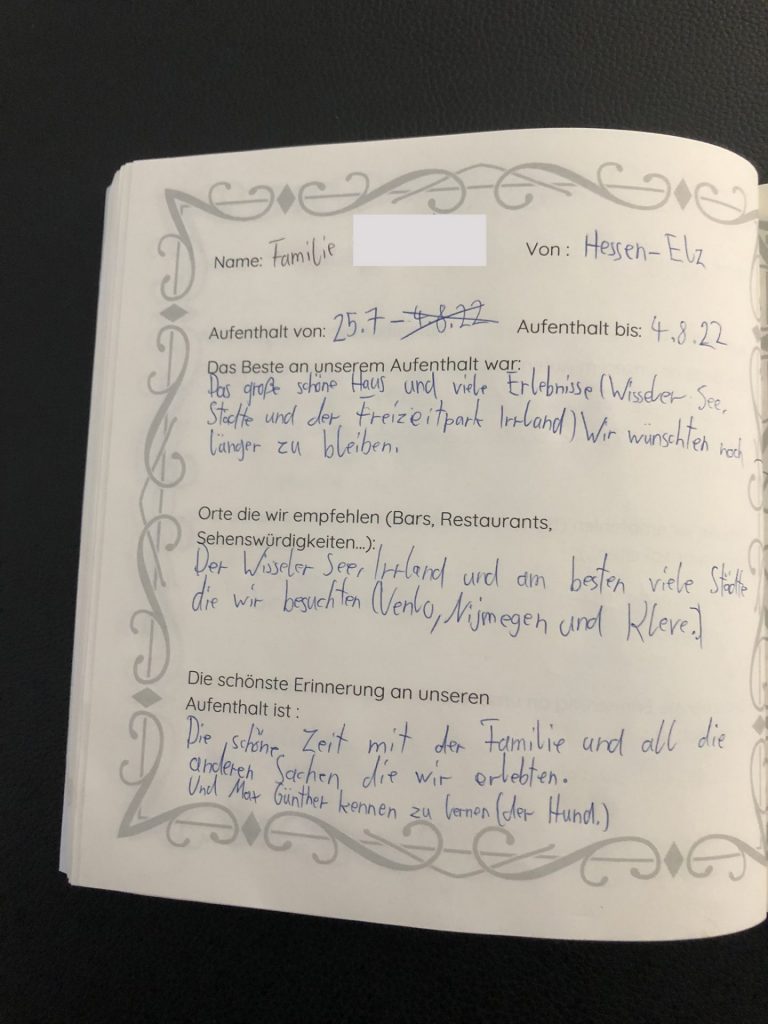 Name: Familie Von: Hessen-Elz
Aufenthalt von: 25.7 - 4.8.22 Aufenthalt bis: 4.8.22
Das Beste an unserem Aufenthalt war:
Das große schöne Haus und viele Erlebnisse (Wisseler See,
Städte und der Freizeitpark Irrland) Wir wünschten noch
länger zu bleiben.
Orte die wir empfehlen (Bars, Restaurants,
Sehenswürdigkeiten...):
Der Wisseler See, Irrland und am besten viele Städte
die wir besuchten (Venlo, Nijmegen und Kleve.)
Die schönste Erinnerung an unseren
Aufenthalt ist :
Die schöne Zeit mit der Familie und all die
anderen Sachen die wir erlebten.
Und Max Günther kennen zu lernen (der Hund.)